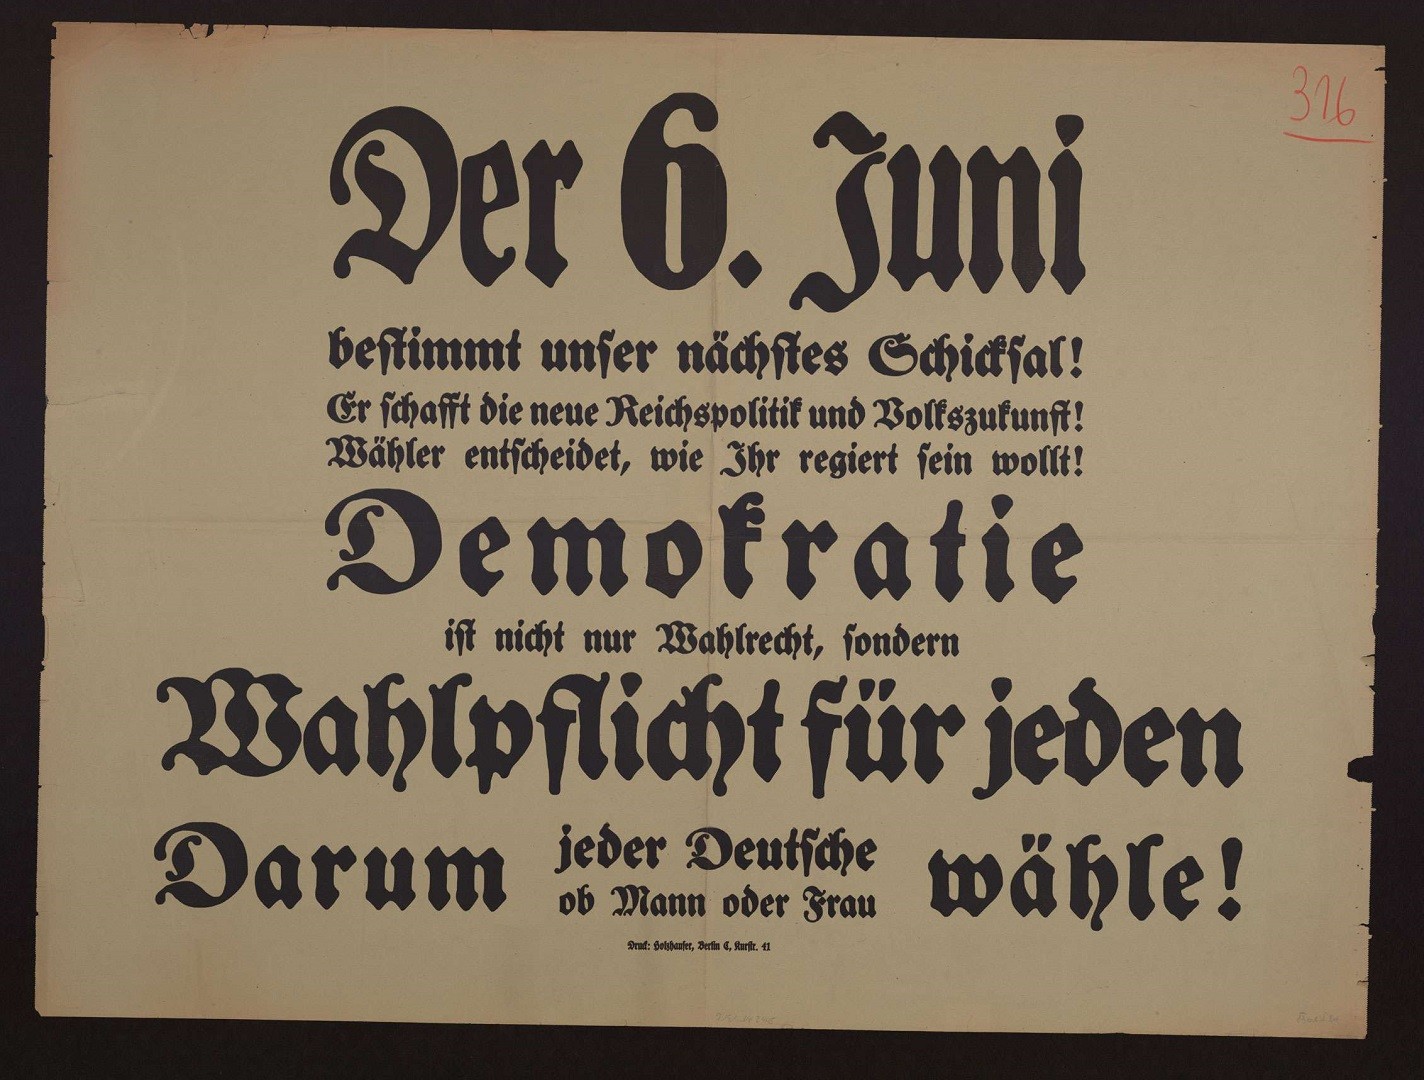 316
Der 6. Juni
bestimmt unser nächstes Schicksal!
Er schafft die neue Reichspolitik und Volkszukunft!
Wähler entscheidet, wie Ihr regiert sein wollt!
Demokratie
ist nicht nur Wahlrecht, sondern
Wahlpflicht für jeden
Darum jeder Deutsche
ob Mann oder Frau wähle!
Druck: Holzhauser, Berlin C, Kurstr. 41